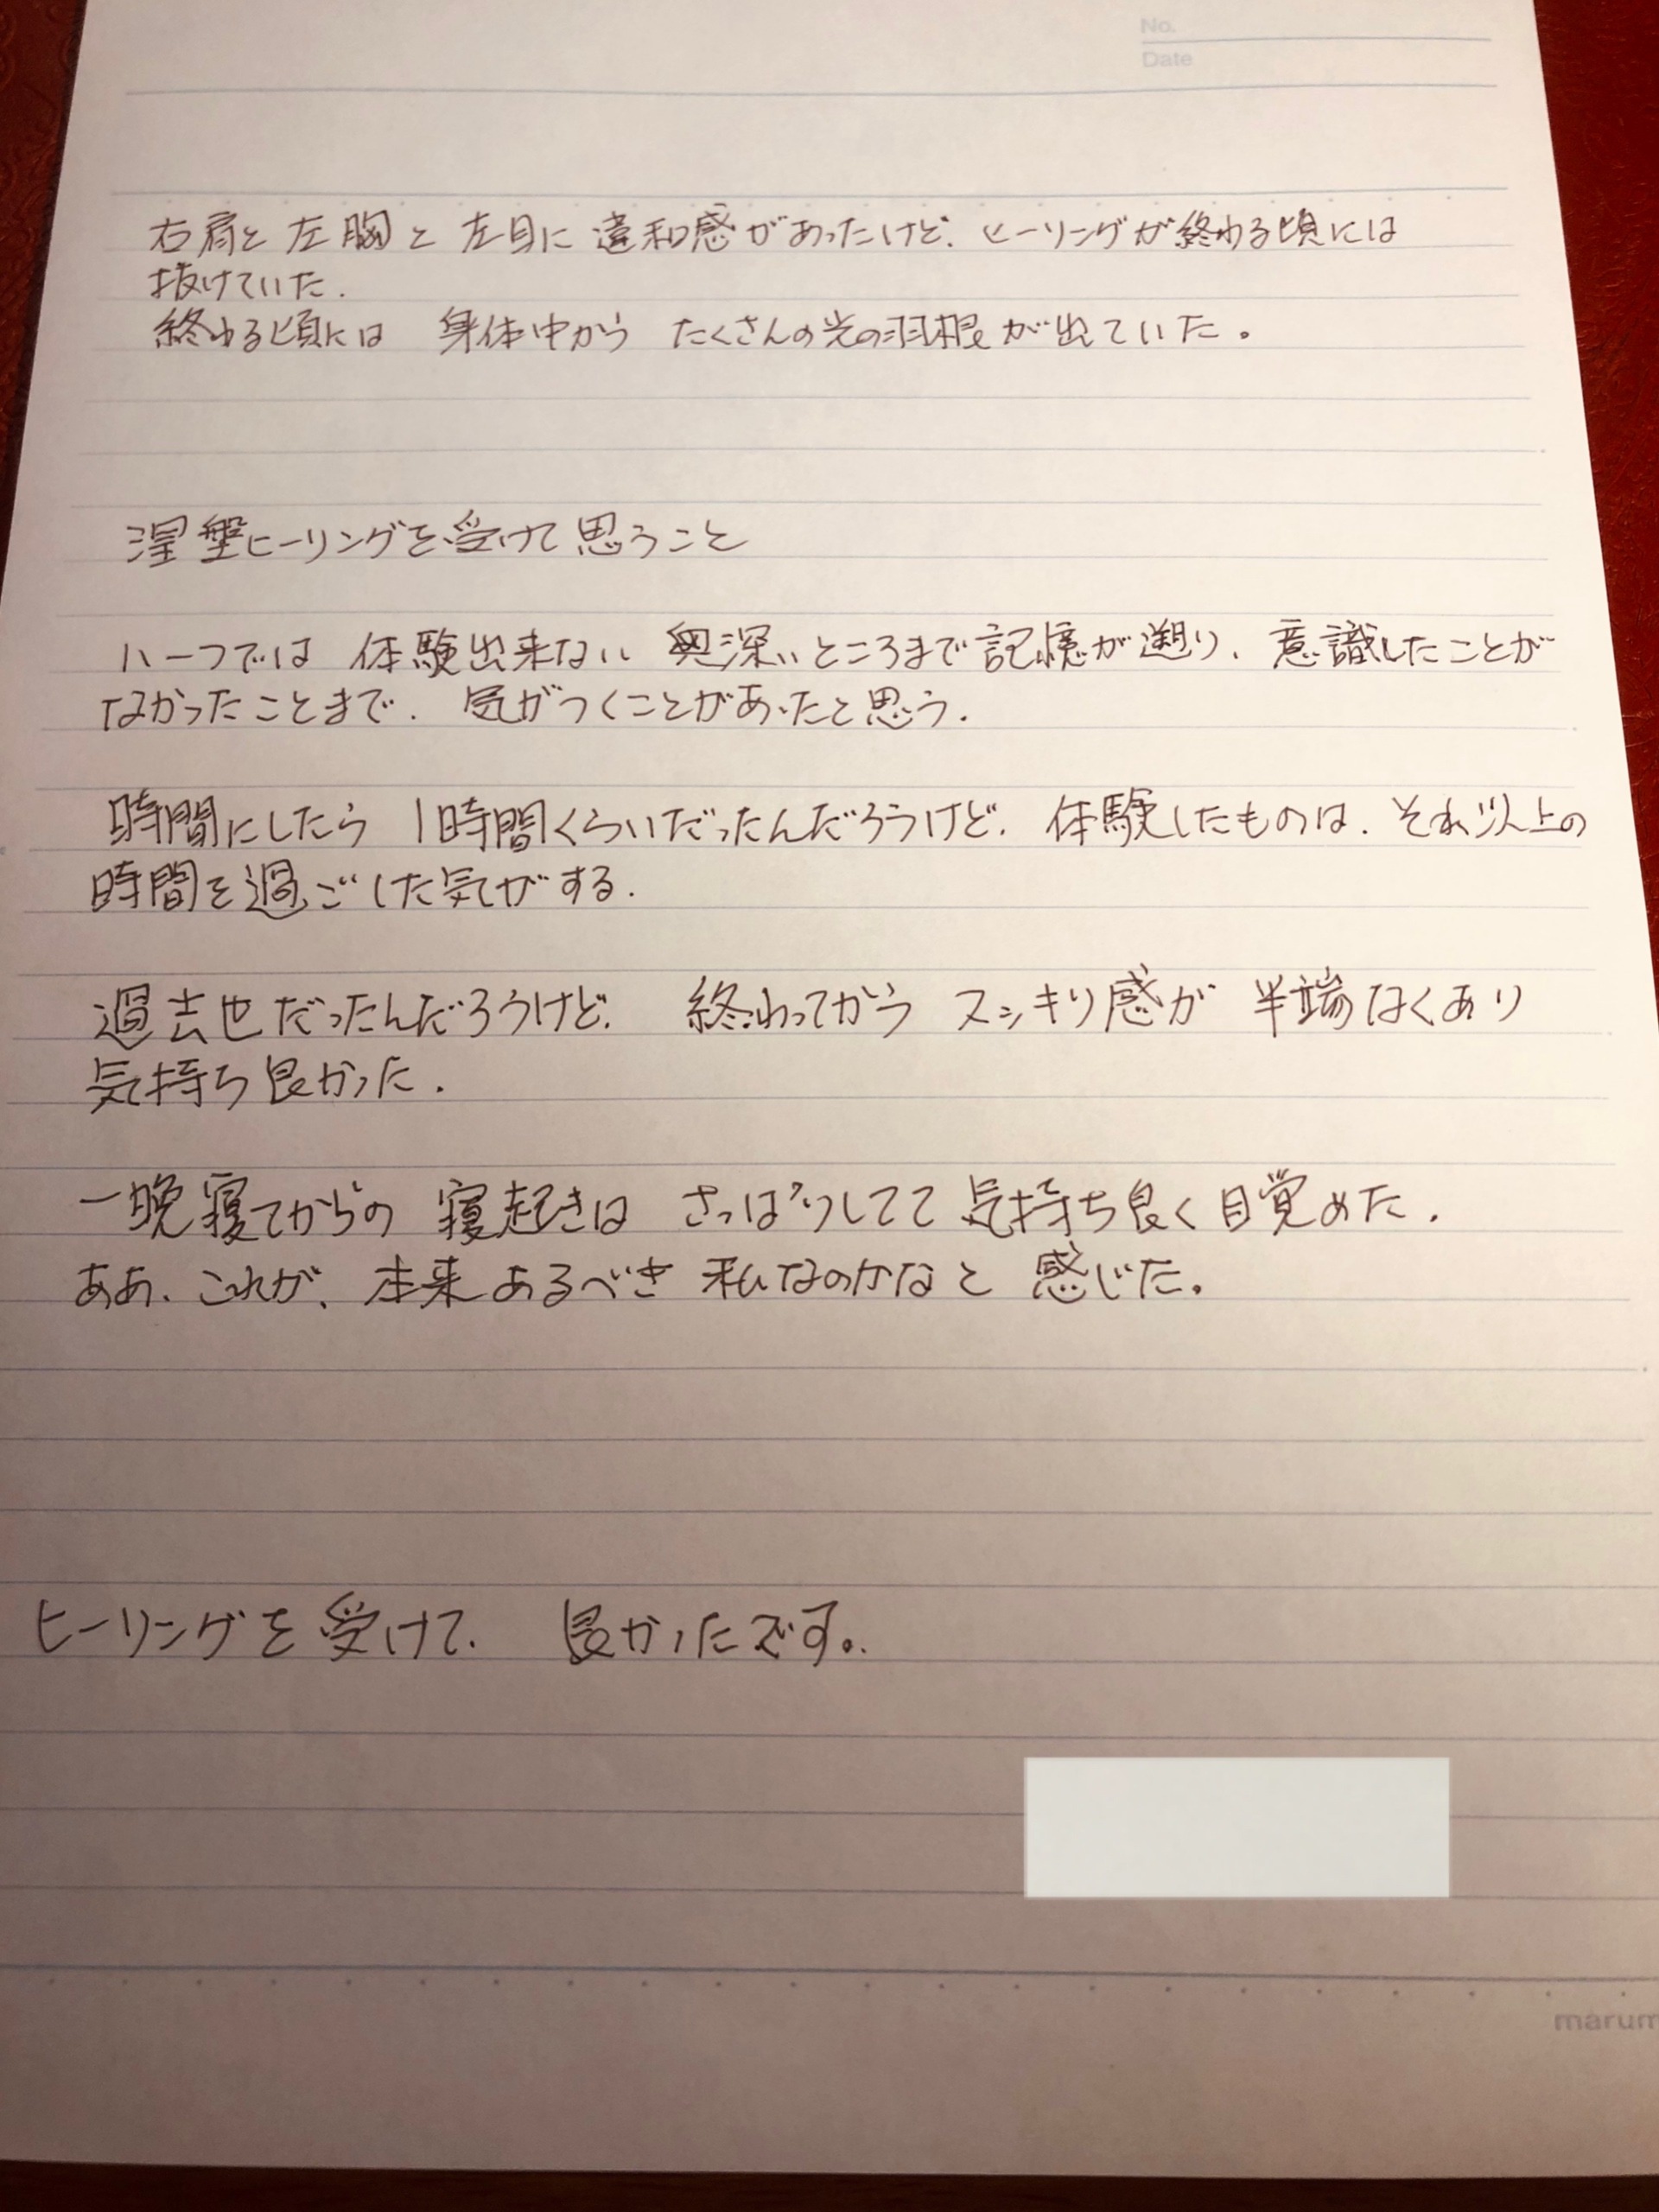 No.
Date
右肩と左胸と左目に違和感があったけど、ヒーリングが終わる頃には
抜けていた.
終わる頃には 身体中から たくさんの光の羽根が出ていた。
涅槃ヒーリングを受けて思うこと
ハーフでは 体験出来ない 奥深いところまで記憶が遡り、意識したことが
なかったことまで、気がつくことがあったと思う.
時間にしたら 1時間くらいだったんだろうけど、体験したものは、それ以上の
時間を過ごした気がする.
過去世だったんだろうけど、 終わってから スッキリ感が 半端なくあり
気持ち良かった.
一晩寝てからの 寝起きは さっぱりしてて 気持ち良く目覚めた.
ああ、これが、本来あるべき 私なのかなと 感じた。
ヒーリングを受けて、 良かったです。
marum